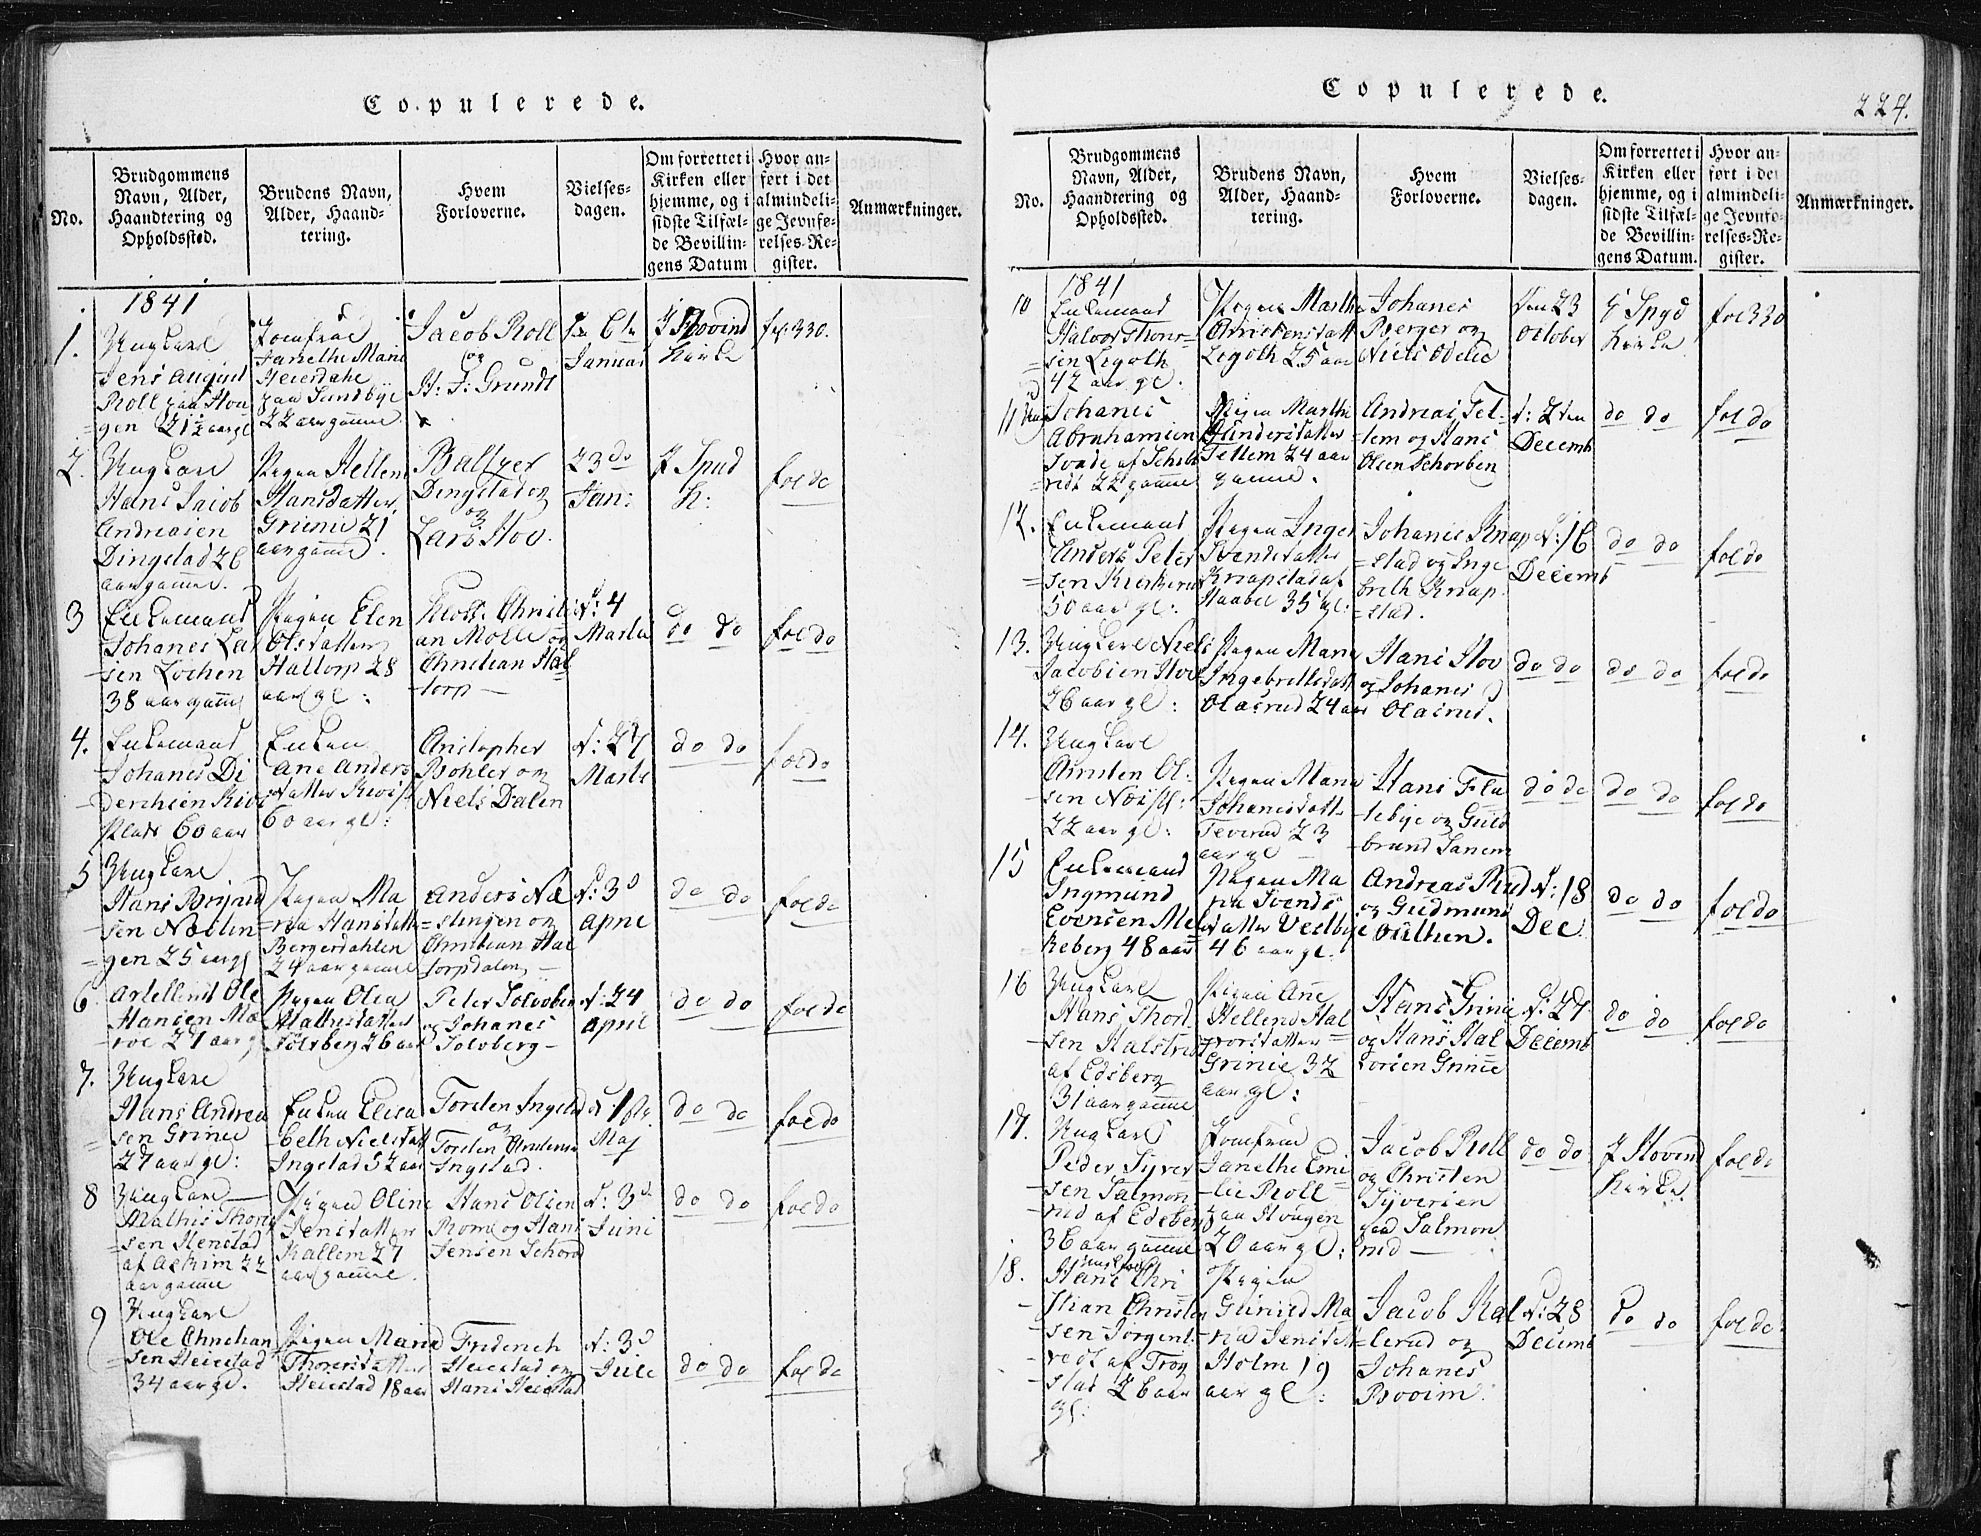 Copulerede.
No.
Brudgommens
Navn, Alder,
Haandtering og
Opholdssted.
Brudens Navn,
Alder, Haand-
tering.
Hvem
Forloverne.
Vielses-
dagen.
Om forrettet i
Kirken eller
hjemme, og i
sidste Tilfæl-
de Bevillin-
gens Datum
Hvor an-
ført i det
almindeli-
ge Jevnfø-
relses-Re-
gister.
Anmærkninger.
1841
1.
Ungkarl
Jens August
Roll paa Hou
=gen 21½ aar gl
Jomfrue
Janethe Marie
Heierdahl
paa Sundbye
22 aar gamle
Jacob Roll
og
H: J: Grundt
6te
Januar
I Hovind
Kirke
fol 330.
2.
Ungkarl
Hans Jacob
Andreasen
Dingstad 26
aar gamel.
Pigen Hellene
Hansdatter
Grinie 21
aar gamel.
Baltzer
Dingstad og
Lars Hov.
23 do
Jan:
I Spyd
K:
fol do
3
Enkemand
Johanes Lar
=sen Lochen
38 aar gamel
Pigen Elen
Olsdatter
Haltorp 28
aar gl:
Christi
an Molle og
Christian Hal
=torp—
d: 4
Marti
do do
fol do
4.
Enkemand
Johanes Di
=derichsen
Plads 60 aar
Enken
Ane Anders
datter
60 aar gl:
Cristopher
Bohler og
Niels Dalen
d: 27
Marti
do do
fol do
5
Ungkarl
Hans Brynild
=sen Næstin
=gen 25 aar gl
Pigen Ma
=ria Hansdatter
Bergerdahlen
24 aar gamel
Anders Næ
=stingen og
Christian Hal
torpdalen—
d: 3d
April
do do
fol do
6.
Ole
Hansen Mo
27 aar gl
Pigen Olea
Mathisdatter
Solvberg 26 aar
Peter Solvberg
og Johanes
Solvberg—
d: 24
April
do do
fol do
7.
Ungkarl
Hans Andrea
=sen Grinie
27 aar gl:
Enken Elisa
=beth Nielsdatt
Ingstad 52 aar
Torsten Ingstad
og
Torsten
Ingstad.
d: 1ste
Maj
do do
fol do
8
Ungkarl—
Mathis Thores
=sen Henstad
af Askim 22
aar gamel
Pigen Oline
Jensdatter
Kallem 27
aar gamel.
Hans Olsen
Rome og Hans
Jensen
d: 3d
Juni
do do
fol do
9
Ungkarl
Ole Christian
=sen Heiestad
34 aar gl.
Pigen Maria
Thoresdatter
Heiestad 18 aar
Friderich
Heiestad og
Hans Heiestad
d: 3d
Juli
do do
fol do
Copulerede.
224.
No.
Brudgommens
Navn, Alder,
Haandtering og
Opholdssted.
Brudens Navn,
Alder, Haand-
tering.
Hvem
Forloverne.
Vielses-
dagen.
Om forrettet i
Kirken eller
hjemme, og i
sidste Tilfæl-
de Bevillin-
gens Datum.
Hvor an-
ført i det
almindeli-
ge Jevnfø-
relses-Re-
gister.
Anmærkninger.
1841
10
Enkemand
Halvor Thors=
=sen Ligoth
42 aar gl.
Pigen Marthe
Christensdatt
Ligoth 25 aar
Johanes
Berger og
Niels
den 23
October
I Spyd
Kirke
fol 330
11
Johanes
Abrahamsen
22 gamel
Pigen Marthe
Gundersdatter
Tellem 24 aar
gamel.
Andreas Tel=
=lem og Hans
Olsen Schorben
d: 2den
Decemb
do do
fol do
12.
Enkemand
Anders Peter
=sen
50 aar gl:
Pigen Inger
Svendsdatter
Knapstad af
Haabøl 35 gl:
Johanes Knap
=stad og Inge
breth Knap
=stad.
d: 16
Decemb
do do
fol do
13.
Ungkarl Niels
Jacobsen Hov
26 aar gl:
Pigen Maria
Ingebretsdatt
Olasrud 24 aar
Hans Hov
og Johanes
Olasrud.
do do
do do
fol do
14.
Ungkarl
Christen Ol=
=sen
22 aar gl:
Pigen Maria
Johanesdatt
Teverud 23
aar gl—
Hans Fla
=tebye og Guld
brand Sanem
do do
do do
fol do
15
Enkemand
Ingmund
Evensen Me
=keberg 48 aar
Pigen Ma
ria Svends
datter Vestbye
46 aar gl.
Andreas Rud
og Gudmund
Outhen.
d: 18
Dec
do do
fol do
16
Ungkarl
Hans Thord
=sen Halstrud
af Edsberg
31 aar gamel
Pigen Ane
Hellene Hal
=vorsdatter
Grinie 32
aar gl:
Hans Grinie
og Hans Hal
vorsen Grinie
d: 27
Decemb
do do
fol do
17.
Ungkarl
Peder Syver
=sen Salmon
=rud af Edsberg
36 aar gamel
Jomfrue
Janethe Emi
=lie Roll
paa Hougen
20 aar gl:
Jacob Roll
og Christen
Syversen
paa Salmon
rud—
do do
I Hovind
Kirke.
fol do
18.
Ungkarl
Hans Chri
=stian Christen
=sen Jorgent
=vedt af Trøg
=stad 26 aar
gl:
Pigen
Gunild Ma
=ria Jensdatt
Holm 19
aar gl:
Jacob Kal
=lerud og
Johanes
Booim.
d: 28
Decemb
do do
fol do